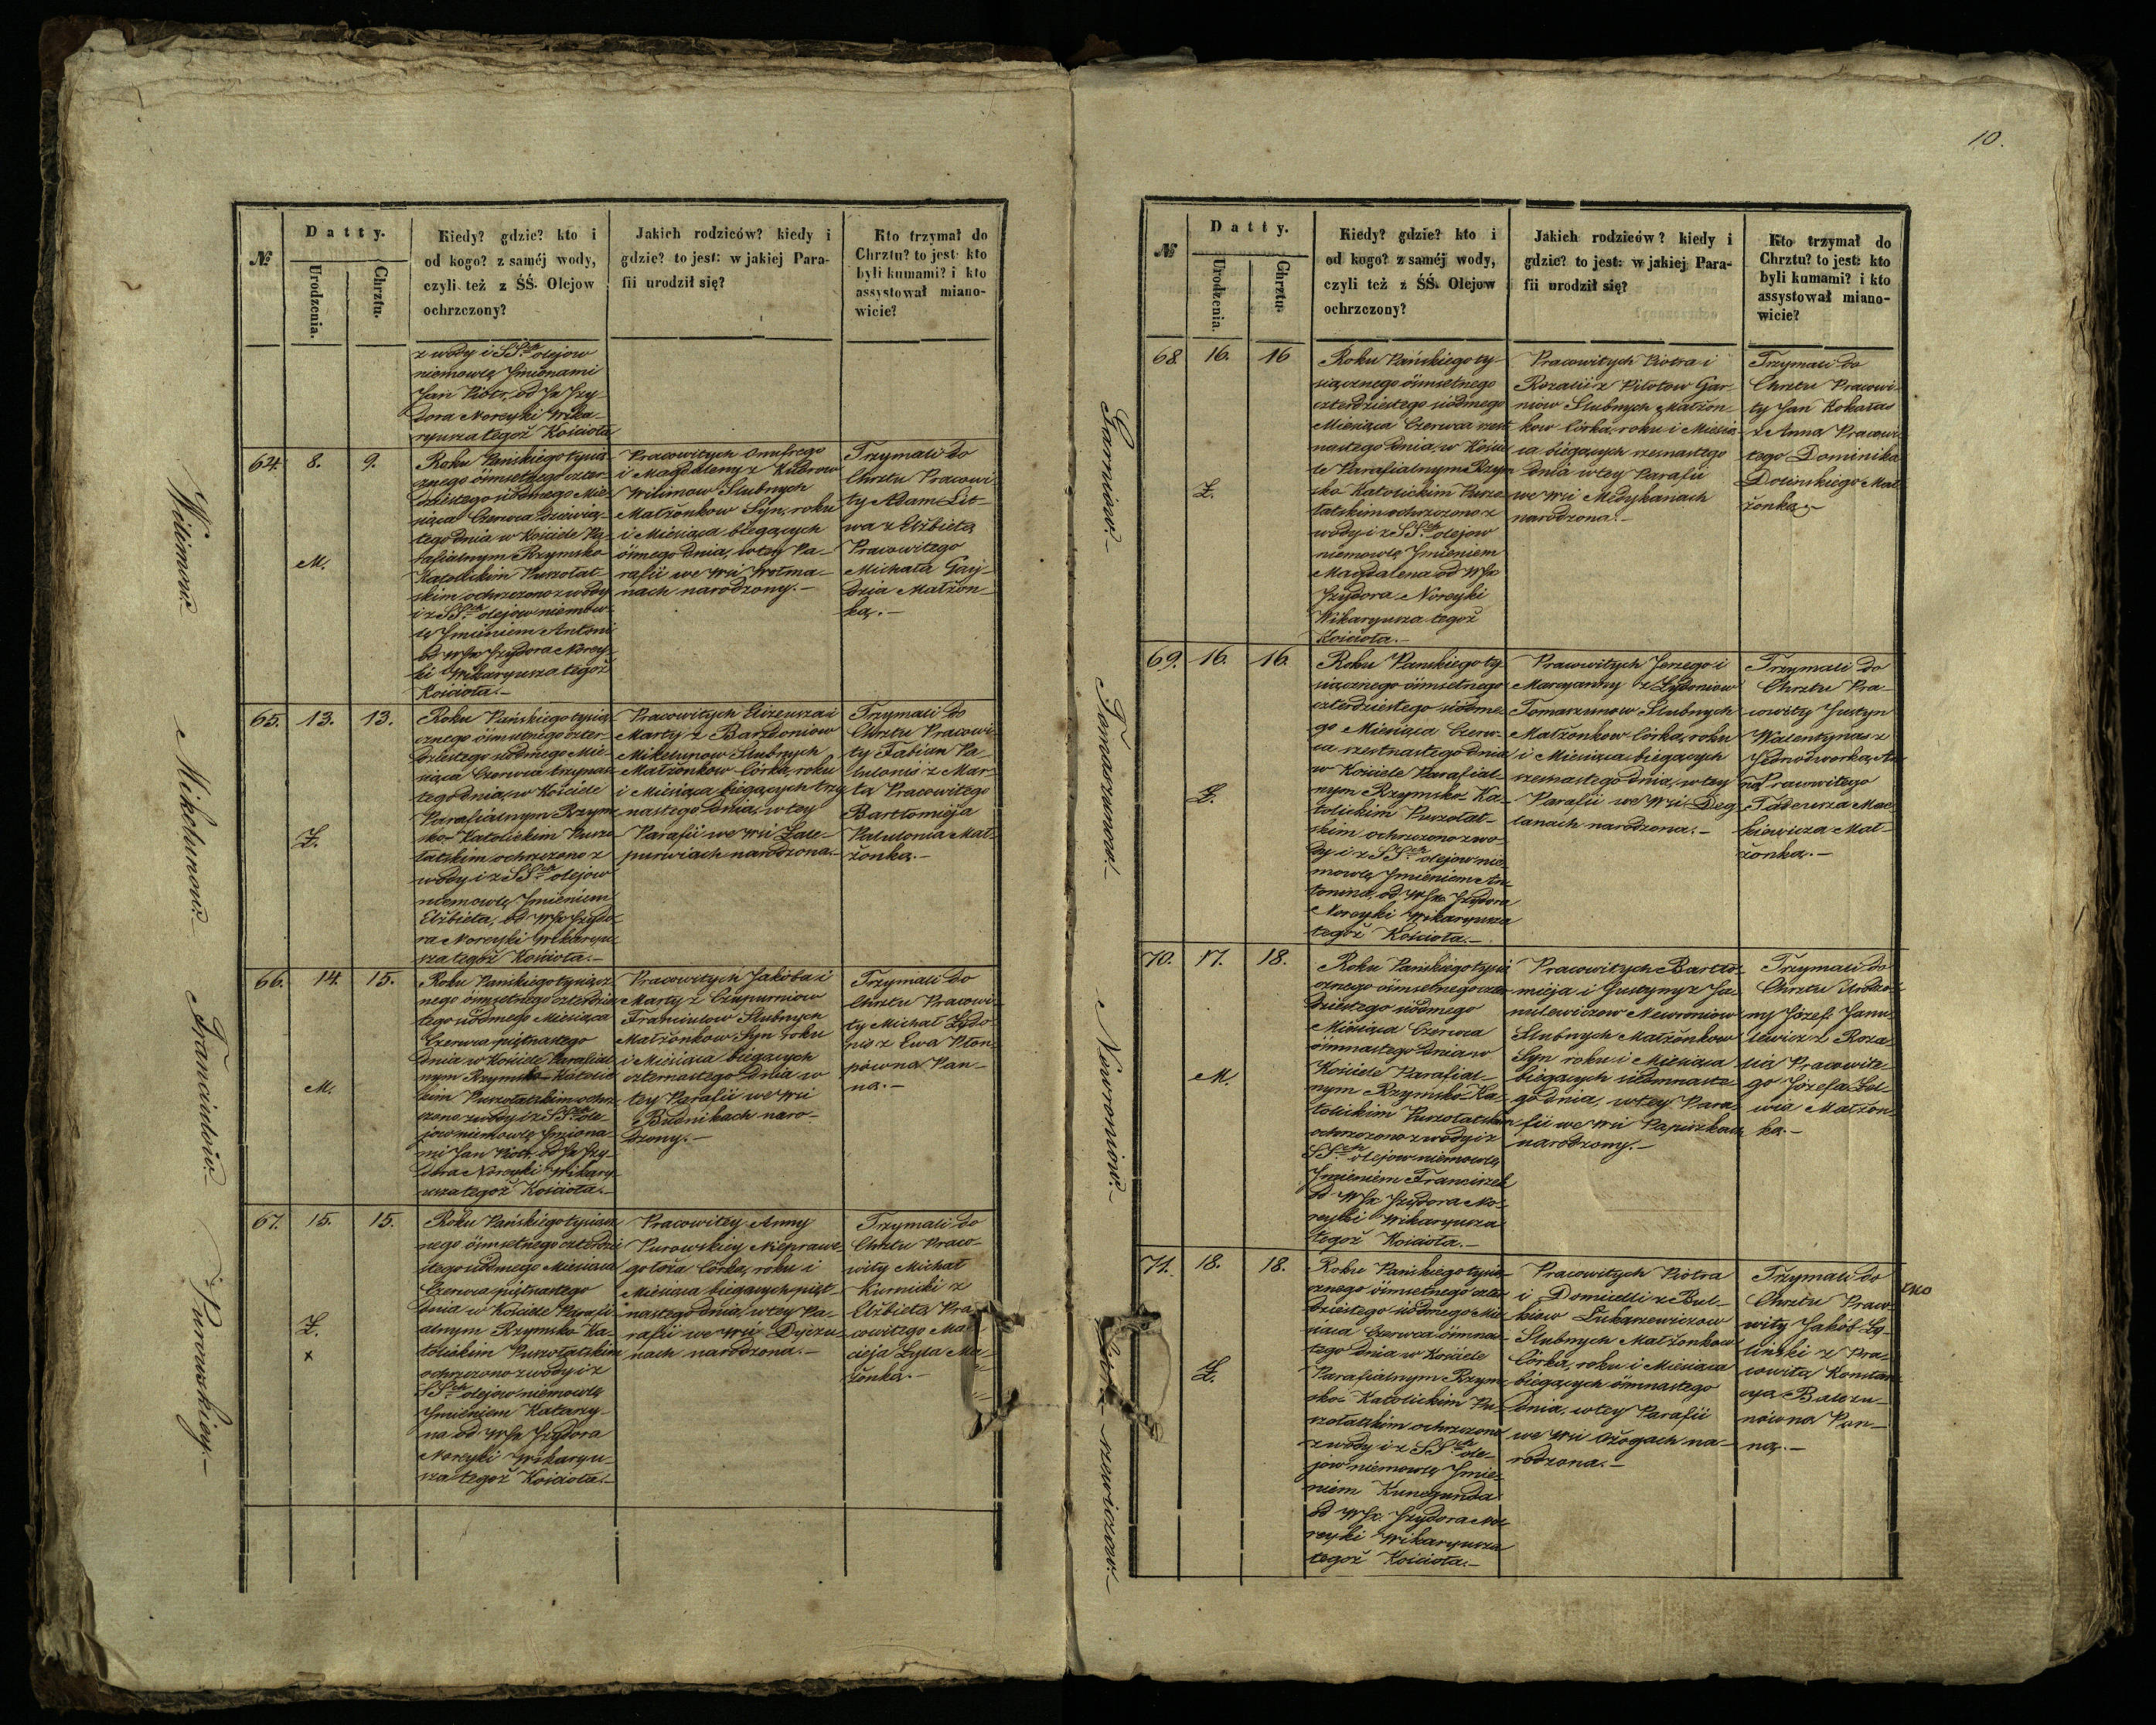 №
D a t t y.
Urodzenia.
Chrztu.
Kiedy? gdzie? kto i
od kogo? z saméj wody,
czyli też z ŚŚ. Olejow
ochrzczony?
Jakich rodziców? kiedy i
gdzie? to jest: w jakiej Para-
fii urodził się?
Kto trzymał do
Chrztu? to jest: kto
byli kumami? i kto
assystował miano-
wicie?
z wody i SS.ch olejow
niemowlę Jmionami
Jan Piotr, od Jx Jzy-
dora Noreyki Wika-
ryusza tegoż Kościoła
64. 8. 9.
M.
Roku Pańskiego tysią-
cznego ośmsetnego czter-
dziestego siódmego Mie-
siąca Czerwca dziewią-
tego dnia w Kościele Pa-
rafialnym Rzymsko
Katolickim Puszołat-
skim ochrzczono z wody
i z SS.ch olejow niemow-
lę Jmieniem Antoni
od WJx Jzydora Norey-
ki Wikaryusza tegoż
Kościoła.-
Pracowitych Onufrego
i Magdaleny z Kuderow
Wilimow Slubnych
Małżonkow Syn, roku
i Miesiąca biegących
ósmego dnia, w tey Pa-
rafii we wsi Wołma-
nach narodzony.-
Trzymali do
Chrztu Pracowi-
ty Adam Lit-
wa z Elżbietą
Pracowitego
Michała Gay-
dzia Małżon-
ką.-
65. 13. 13.
Ż.
Roku Pańskiego tysią-
cznego ośmsetnego czter-
dziestego siódmego Mie-
siąca Czerwca trzynas-
tego dnia, w Kościele
Parafialnym Rzym-
sko-Katolickim Puszo-
łatskim ochrzczono z
wody i z SS.ch olejow
niemowlę Jmieniem
Elżbieta, od WJx Jzydo-
ra Noreyki Wikaryu-
sza tegoż Kościoła.-
Pracowitych Elizeusza i
Marty z Barzdoniow
Mikelunow Slubnych
Małżonkow Córka, roku
i Miesiąca biegących trzy-
nastego dnia, w tey
Parafii we wsi Łale-
purwiach narodzona.-
Trzymali do
Chrztu Pracowi-
ty Fabian Pa-
lulonis z Mar-
tą Pracowitego
Bartłomieja
Palulonia Mał-
żonką.-
66. 14. 15.
M.
Roku Pańskiego tysiącz-
nego ósmsetnego czterdzies-
tego siódmego Miesiąca
Czerwca piętnastego
dnia w Kościele Parafial-
nym Rzymsko-Katolic-
kim Puszołatskim ochrz-
czono z wody i z SS.ch ole-
jow niemowlę Jmiona-
mi Jan Piotr, od Jx Jzy-
dora Noreyki Wikary-
usza tegoż Kościoła.-
Pracowitych Jakóba i
Marty z Czupurniow
Franciulow Slubnych
Małżonkow Syn, roku
i Miesiąca biegących
czternastego dnia w
tey Parafii we wsi
Budnikach naro-
dzony.-
Trzymali do
Chrztu Pracowi-
ty Michał Żydo-
nis z Ewa
Pan-
na.-
67. 15. 15.
Ż.
x
Roku Pańskiego tysiącz-
nego ósmsetnego czterdzie-
stego siódmego Miesiąca
Czerwca piętnastego
dnia w Kościele Parafi-
alnym Rzymsko Ka-
tolickim Puszołatskim
ochrzczono z wody i z
SS.ch olejow niemowlę
Jmieniem Katarzy-
na od WJx Jzydora
Noreyki Wikaryu-
sza tegoż Kościoła.-
Pracowitey Anny
Purowskiey Nieprawe-
go łoża Córka, roku i
Miesiąca biegących pięt-
nastego dnia, w tey Pa-
rafii we wsi
nach narodzona.-
Trzymali do
Chrztu Praco-
wity Michał
Kurnicki z
Elżbietą Pra-
cowitego Ma-
cieja Ma-
żonką.-
Wilimow.-
Mikelunow.-
Franciulow.-
Purowskiey.-
10.
№
D a t t y.
Urodzenia.
Chrztu.
Kiedy? gdzie? kto i
od kogo? z saméj wody,
czyli też z ŚŚ. Olejow
ochrzczony?
Jakich rodziców? kiedy i
gdzie? to jest: w jakiej Para-
fii urodził się?
Kto trzymał do
Chrztu? to jest: kto
byli kumami? i kto
assystował miano-
wicie?
68. 16. 16
Ż.
Roku Pańskiego ty-
siącznego ósmsetnego
czterdziestego siódmego
Miesiąca Czerwca szest-
nastego dnia, w Koście-
le Parafialnym Rzym-
sko Katolickim Puszo-
łatskim ochrzczono z
wody i z SS.ch olejow
niemowlę Jmieniem
Magdalena od WJx
Jzydora Noreyki
Wikaryusza tegoż
Kościoła.-
Pracowitych Piotra i
Rozalii z Pilotow Gar-
niow Slubnych Małżon-
kow Córka, roku i Miesią-
ca biegących szesnastego
dnia w tey Parafii
we wsi Medykanach
narodzona.-
Trzymali do
Chrztu Pracowi-
ty Jan
z Anna Pracowi-
tego Dominika
Dolinskiego Mał-
żonką.-
69. 16. 16.
Ż.
Roku Panskiego ty-
siącznego ósmsetnego
czterdziestego siódme-
go Miesiąca Czerw-
ca szestnastego dnia
w Kościele Parafial-
nym Rzymsko-Ka-
tolickim Puszołat-
skim ochrzczono z wo-
dy i z SS.ch olejow nie-
mowlę Jmieniem An-
tonina, od WJx. Jzydora
Noreyki Wikaryusza
tegoż Kościoła.-
Pracowitych Jerzego i
Maryanny z Żydoniow
Tomaszunow Slubnych
Małżonkow Córka, roku
i Miesiąca biegących
szesnastego dnia, w tey
Parafii we wsi Deg-
lanach narodzona.-
Trzymali do
Chrztu Pra-
cowity Justyn
Walentynas z
Pracowitego
Tadeusza Mac-
kiewicza Mał-
żonka.-
70. 17. 18.
M.
Roku Pańskiego tysią-
cznego ósmsetnego czter-
dziestego siódmego
Miesiąca Czerwca
ósmnastego dnia w
Kościele Parafial-
nym Rzymsko-Ka-
tolickim Puszołatskim
ochrzczono z wody i z
SS.ch olejow niemowlę
Jmieniem Franciszek
od WJx Jzydora No-
reyki Wikaryusza
tegoż Kościoła.-
Pracowitych Bartło-
mieja i Justyny z Ja-
nulewiczow Newroniow
Slubnych Małżonkow
Syn roku i Miesiąca
biegących siedmnaste-
go dnia, w tey Para-
fii we wsi Papiszkach
narodzony.-
Trzymali do
Chrztu Urodzo-
ny Józef Janu-
lewicz z Roza-
lią Pracowite-
go Józefa
Małżon-
ką.-
71. 18. 18.
Ż.
Roku Pańskiego tysią-
cznego ósmsetnego czter-
dziestego siódmego Mie-
siąca Czerwca ósmnas-
tego dnia w Kościele
Parafialnym Rzym-
sko-Katolickim Pu-
szołatskim ochrzczono
z wody i z SS.ch ole-
jow niemowlę Jmie-
niem Kunegunda
od WJx. Jzydora No-
reyki Wikaryusza
tegoż Kościoła.-
Pracowitych Piotra
i Domicelli z Bul-
kiow Łukaszewiczow
Slubnych Małżonkow
Córka, roku i Miesiąca
biegących ósmnastego
dnia, w tey Parafii
we wsi Ożogach na-
rodzona.-
Trzymali do
Chrztu Praco-
wity Jakób
z Pra-
cowitą Konstan-
cya Balczu-
nówna Pan-
ną.-
Garniow.-
Tomaszunow.-
Newroniow.-